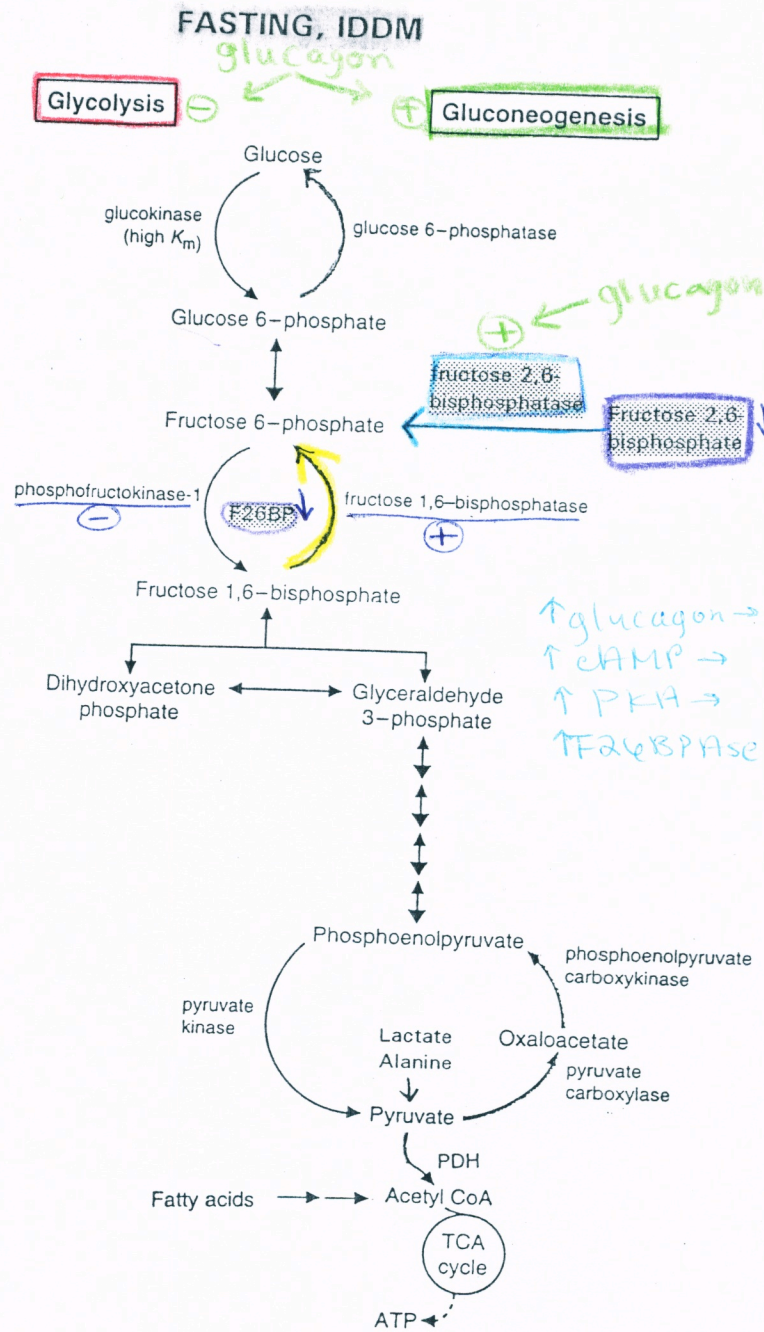 FASTING, IDDM
glucagon
Glycolysis ⊖
⊕ Gluconeogenesis
Glucose
glucokinase
(high Km)
glucose 6-phosphatase
glucagon
Glucose 6-phosphate
+
fructose 2,6-
bisphosphatase
Fructose 2,6-
bisphosphate ↓
Fructose 6-phosphate
phosphofructokinase-1
−
F26BP ↓
fructose 1,6-bisphosphatase
+
Fructose 1,6-bisphosphate
↑ glucagon →
↑ cAMP →
↑ PKA →
↑F26BPAse
Dihydroxyacetone
phosphate
Glyceraldehyde
3-phosphate
Phosphoenolpyruvate
phosphoenolpyruvate
carboxykinase
pyruvate
kinase
Lactate
Alanine
Oxaloacetate
pyruvate
carboxylase
Pyruvate
PDH
Fatty acids
Acetyl CoA
TCA
cycle
ATP